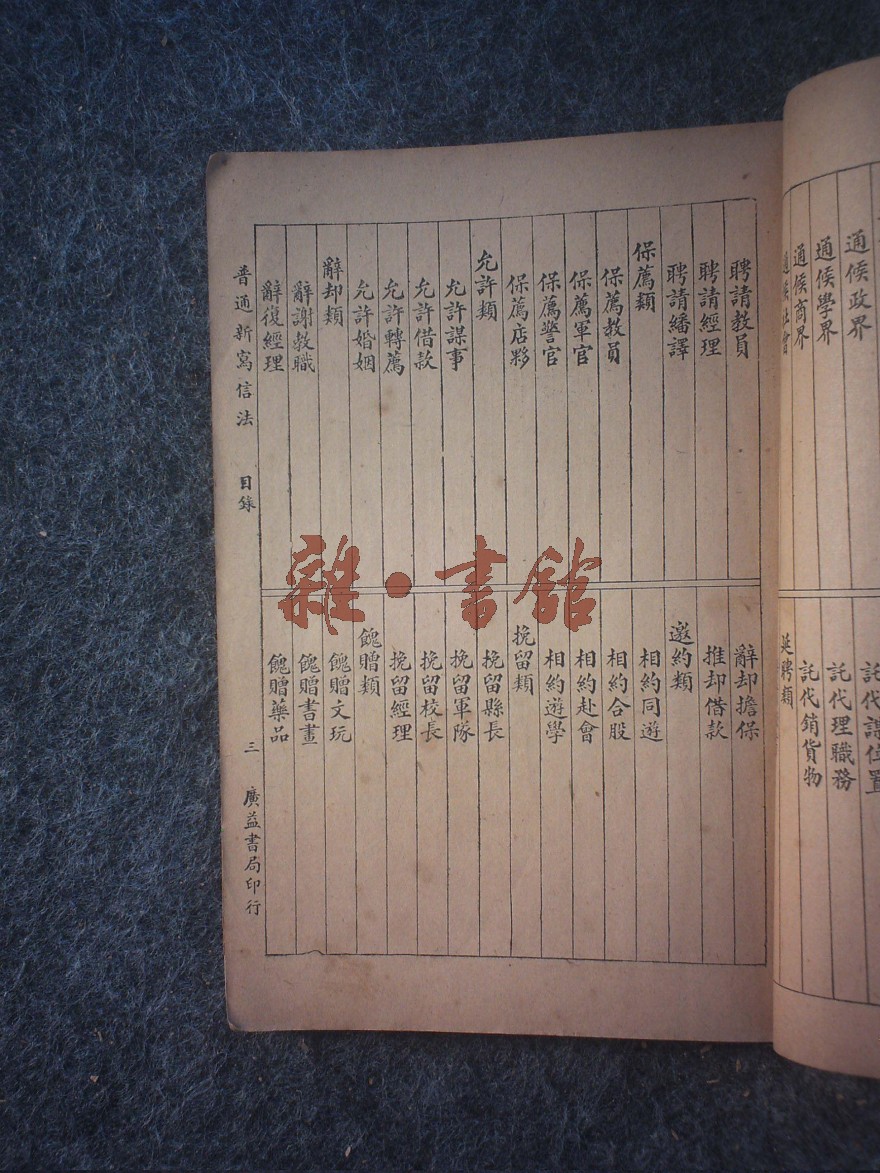 通候政界
通候學界
通候商界
託代謀位置
託代理職務
託代銷貨物
延聘類
聘請教員
聘請經理
聘請繙譯
保薦類
保薦教員
保薦軍官
保薦警官
保薦店夥
允許類
允許謀事
允許借款
允許轉薦
允許婚姻
辭却類
辭謝教職
辭復經理
辭却擔保
推却借款
邀約類
相約同遊
相約合股
相約赴會
相約遊學
挽留類
挽留縣長
挽留軍隊
挽留校長
挽留經理
餽贈類
餽贈文玩
餽贈書畫
餽贈藥品
普通新寫信法 目錄 三 廣益書局印行
雜·書館